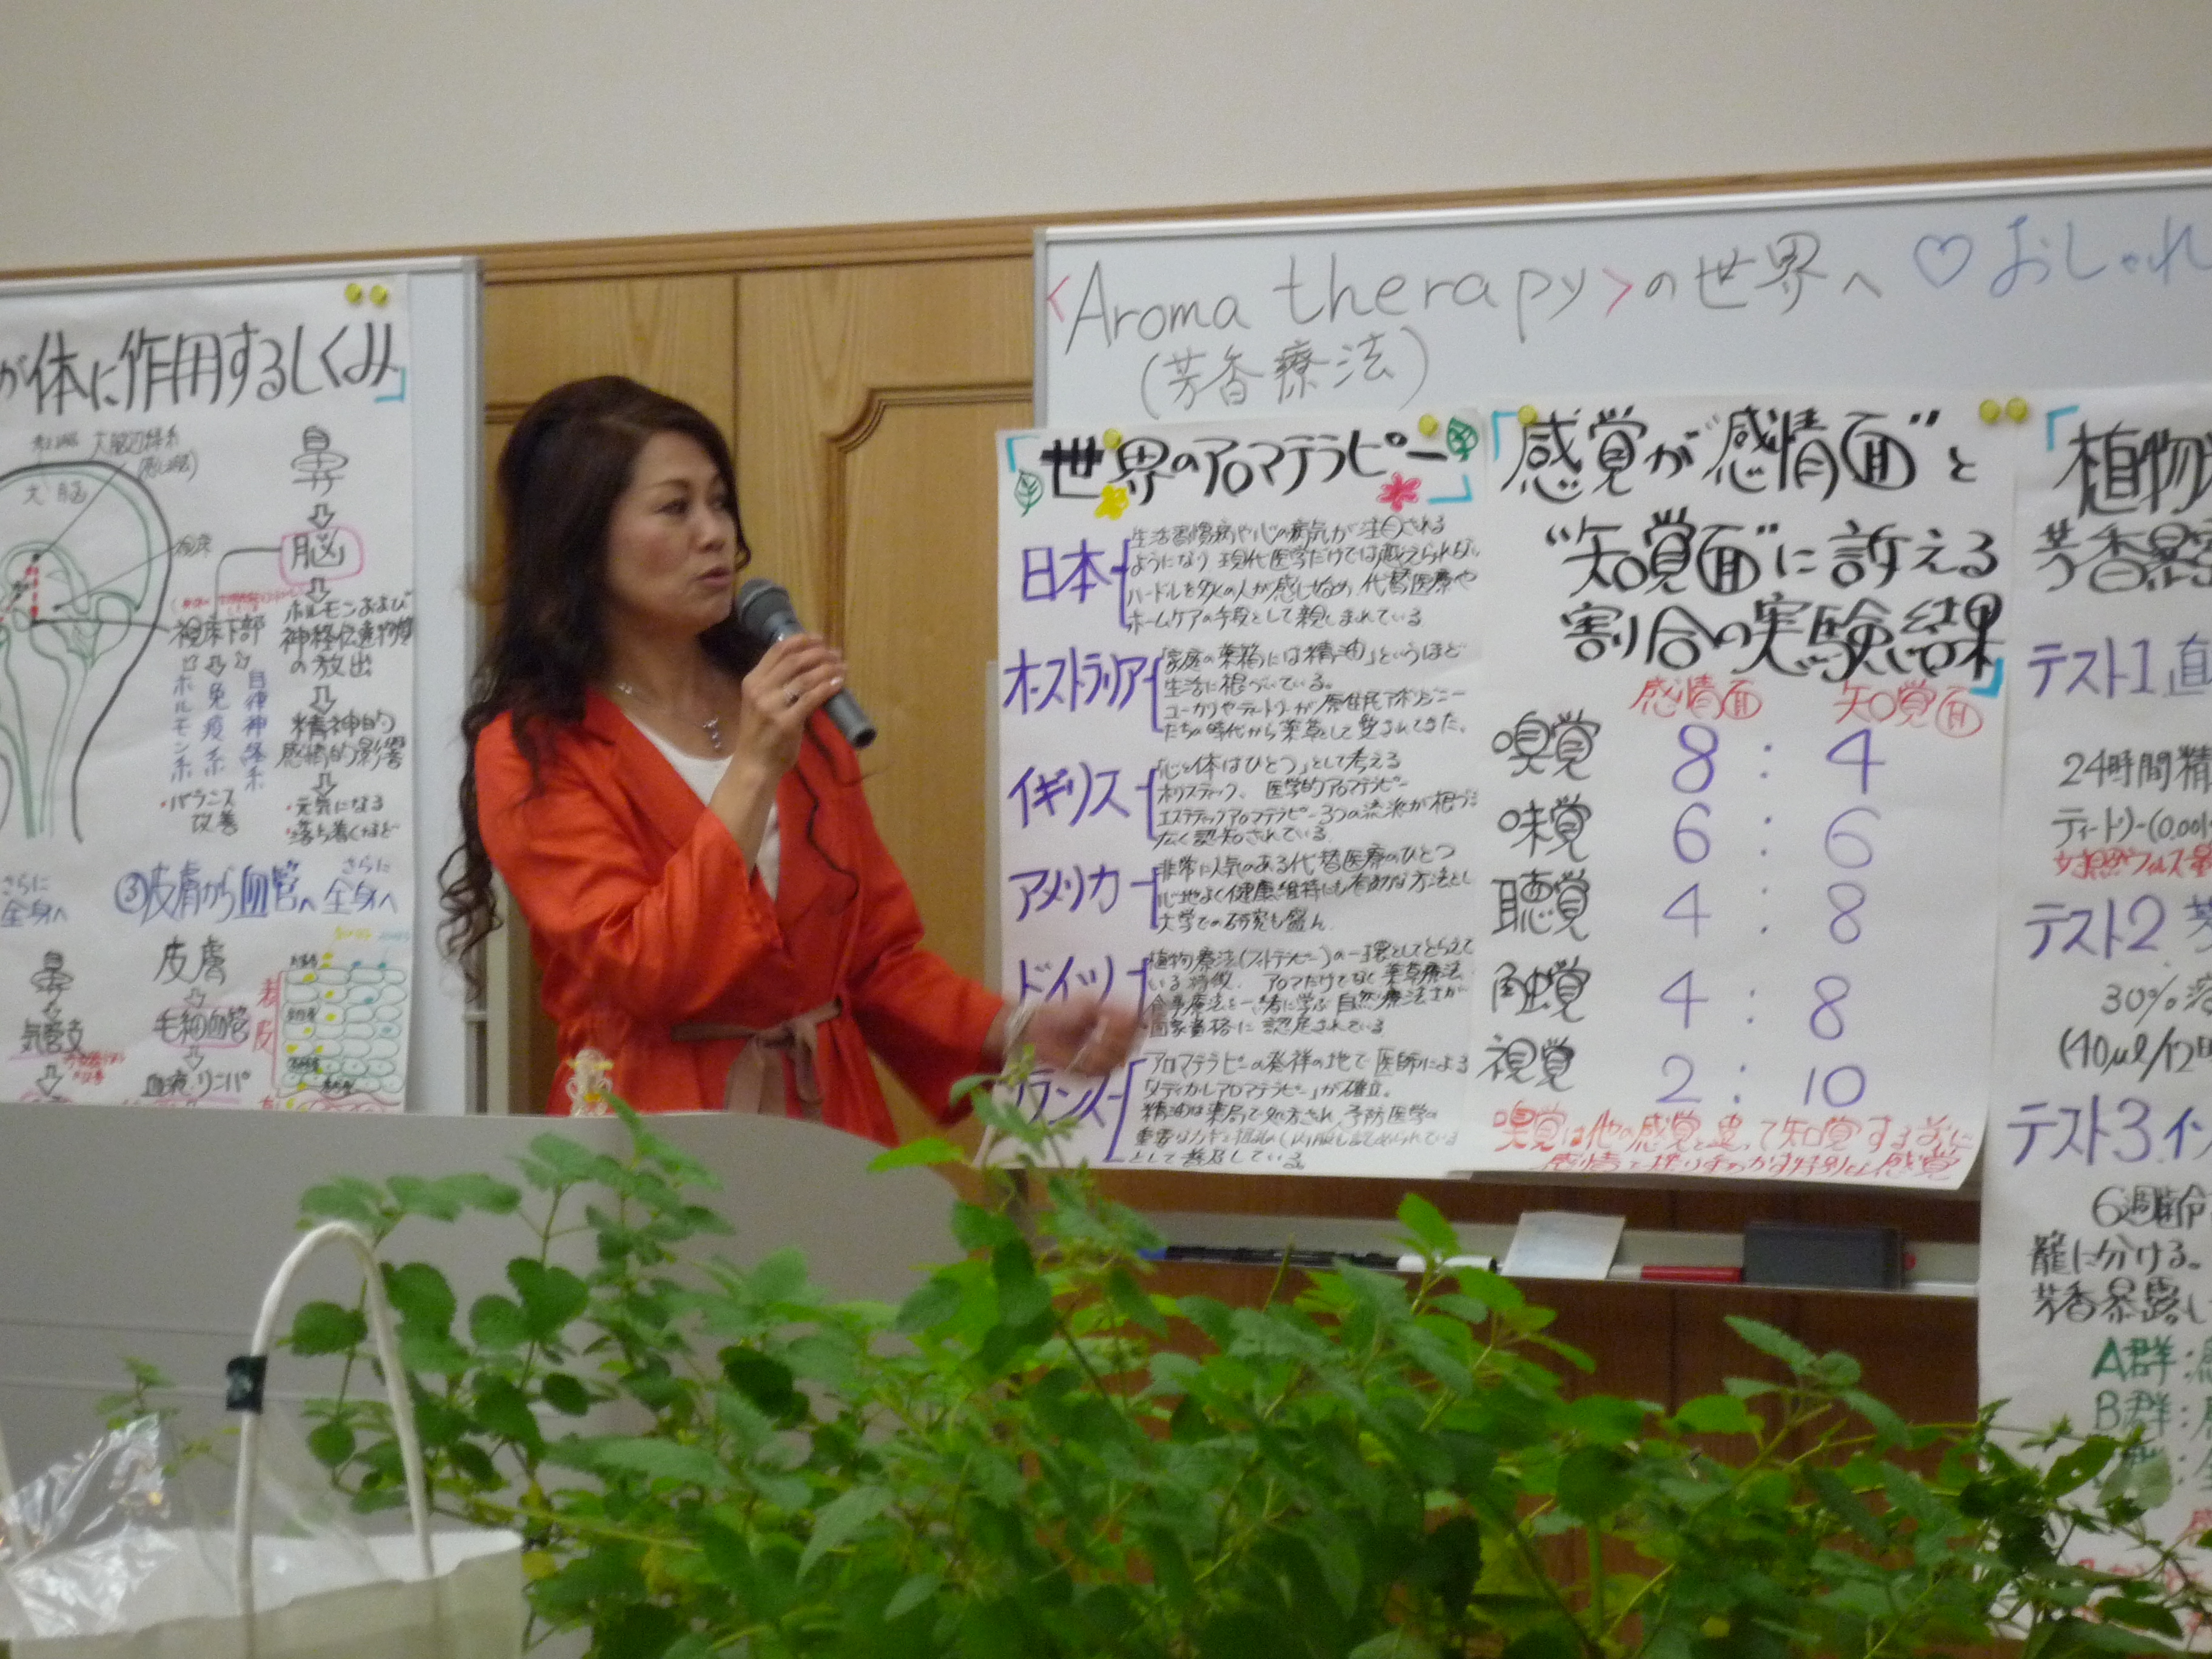 が体に作用するしくみ」
大脳辺縁系
大脳
鼻
脳
視床下部
ホルモン系
免疫系
自律神経系
・バランス
改善
ホルモンおよび
神経伝達物質
の放出
精神的
感情的影響
・元気になる
・落ち着くなど
さらに
全身へ
③皮膚から血管へ さらに
全身へ
鼻
気管支
皮膚
毛細血管
血液・リンパ
表皮
<Aroma therapy>の世界へ ♡おしゃれ
(芳香療法)
「世界のアロマテラピー」
日本
生活習慣病や心の病気が注目される
ようになり 現代医学だけでは越えられない
ハードルを多くの人が感じ始め、代替医療や
ホームケアの手段として親しまれている
オーストラリア
「家庭の薬箱には精油」というほど
生活に根づいている。
ユーカリやティートリーが原住民アボリジニー
たちの時代から薬草として愛されてきた。
イギリス
「心と体はひとつ」として考える
ホリスティック、医学的アロマテラピー
エステティックアロマテラピー 3つの流派が根づき
広く認知されている
アメリカ
非常に人気のある代替医療のひとつ
心地よく健康維持にも有効な方法とし
大学での研究も盛ん
ドイツ
植物療法(フィトテラピー)の一環としてとらえて
いる特徴、アロマだけでなく薬草療法
食事療法を一緒に学ぶ 自然療法士が
国家資格に認定されている
フランス
アロマテラピーの発祥の地で 医師による
「メディカルアロマテラピー」が確立。
精油は薬局で処方され、予防医学の
として普及している。
「感覚が“感情面”と
“知覚面”に訴える
割合の実験結果」
感情面 知覚面
嗅覚 8 : 4
味覚 6 : 6
聴覚 4 : 8
触覚 4 : 8
視覚 2 : 10
嗅覚は他の感覚と違って知覚する前に
感情で揺りうごかす特別な感覚
「植物
芳香
テスト1 直
24時間精
ティートリー(0.00
テスト2 芳
30%
(40μl/12
テスト3 イ
6週齢
籠に分ける。
芳香暴露し
A群:
B群: